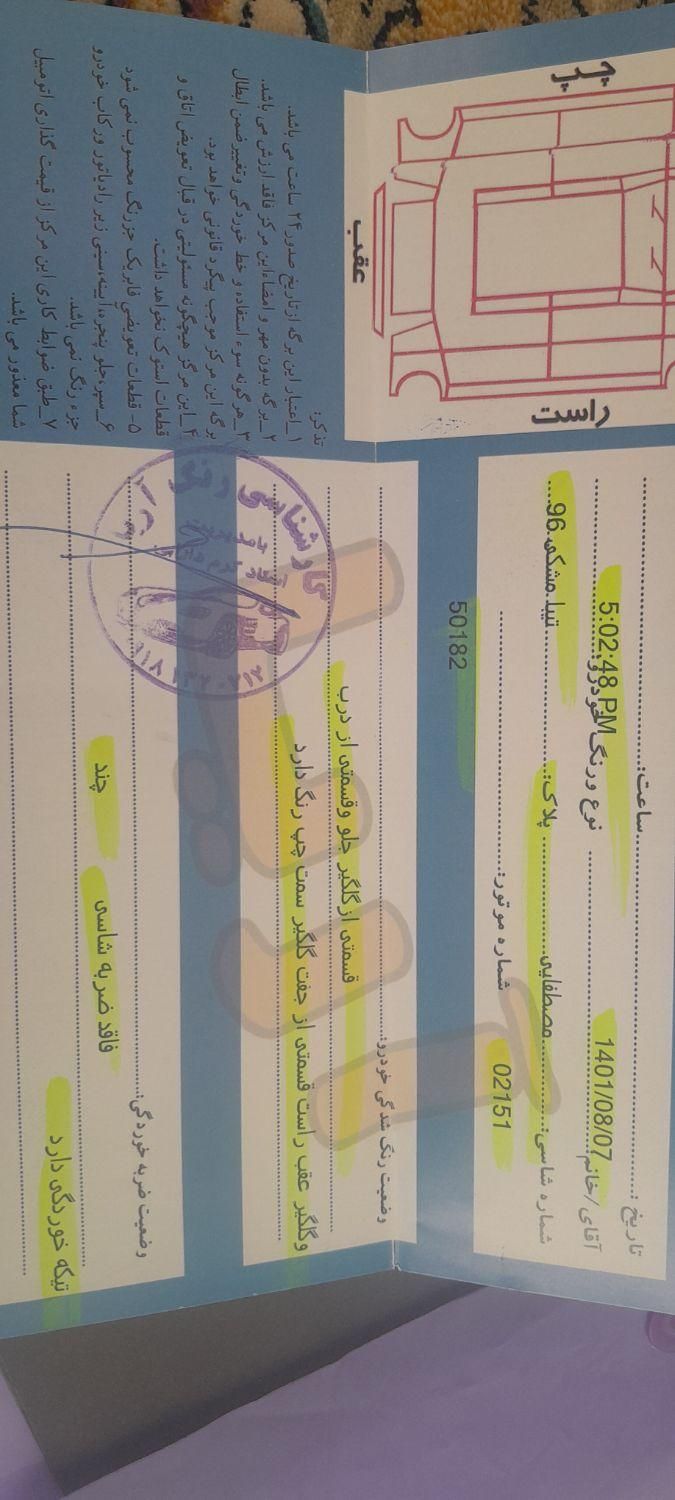 چپ
عقب
راست
تذکر:
۱_اعتبار این برگه از تاریخ صدور ۲۴ ساعت می باشد.
۲_برگه بدون مهر و امضاء این مرکز فاقد ارزش می باشد.
۳_هرگونه سوء استفاده و خط خوردگی و تغییر ضمن ابطال
برگه این مرکز موجب پیگرد قانونی خواهد بود.
۴_این مرکز هیچگونه مسئولیتی در قبال تعویض اتاق و
قطعات استوک نخواهد داشت.
۵_قطعات تعویضی فابریک جزرنگ محسوب نمی شود
۶_سپر،جلو پنجره،آینه،سینی زیر رادیاتور و رکاب خودرو
جزء رنگ نمی باشد.
۷_طبق ضوابط کاری این مرکز از قیمت گذاری اتومبیل
شما معذور می باشد.
تاریخ: 1401/08/07 ساعت: 5:02:48 P.M
آقای/خانم: مصطفایی نوع و رنگ خودرو: تیبا مشکی 96
شماره شاسی: 02151 پلاک:
شماره موتور: 50182
وضعیت رنگ شدگی خودرو:
قسمتی از گلگیر جلو وقسمتی از درب
وگلگیر عقب راست قسمتی از جفت گلگیر سمت چپ رنگ دارد
وضعیت ضربه خوردگی:
فاقد ضربه شاسی چند
تیگه خوردگی دارد
کارشناسی رنو